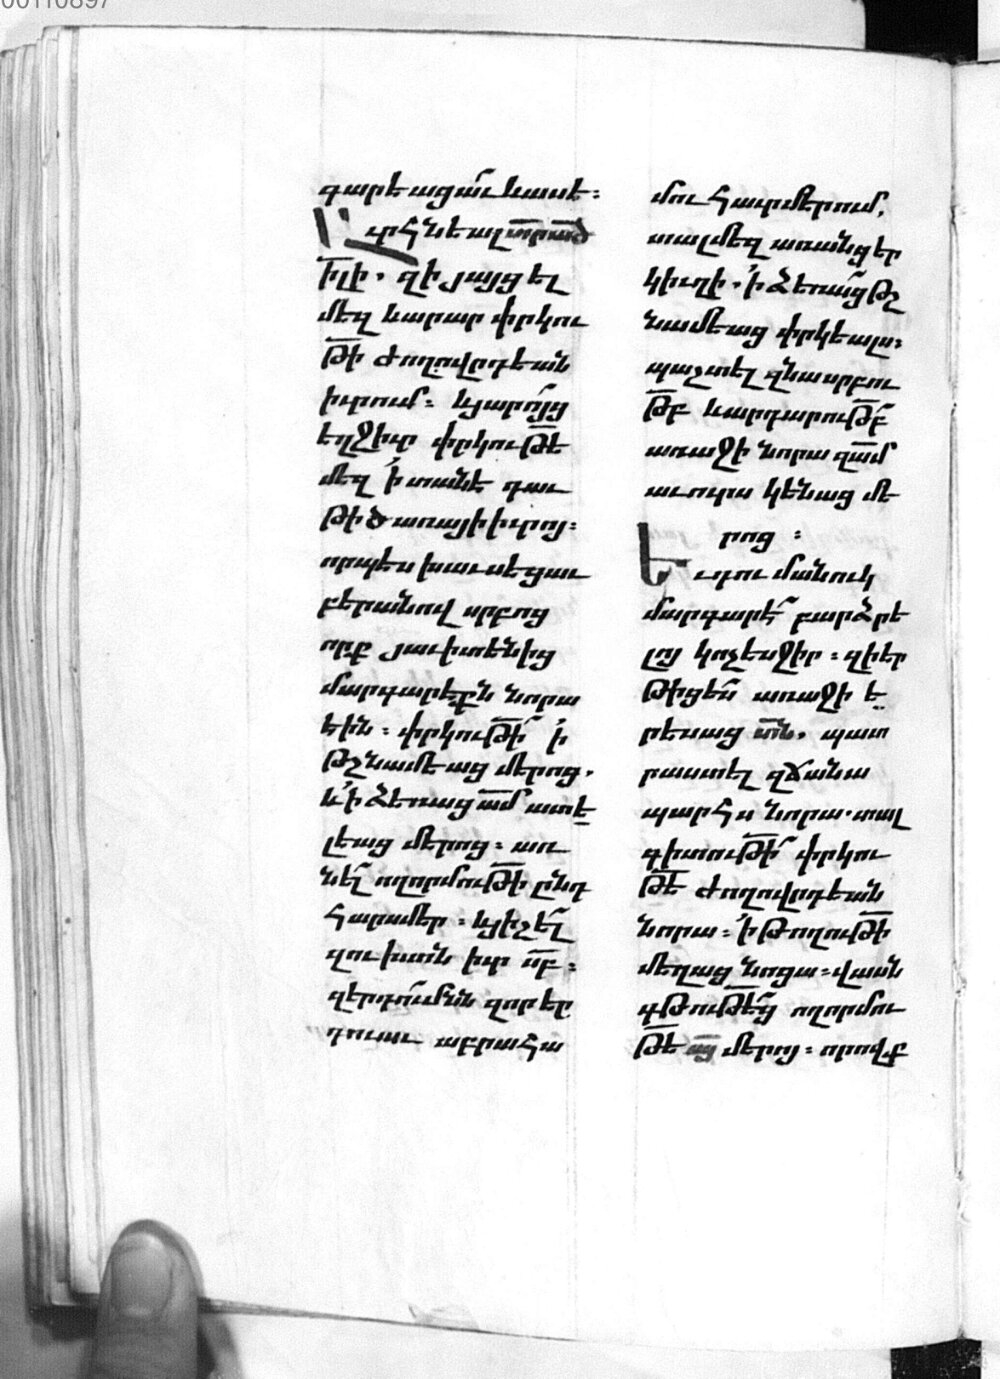 00110897
գարեացաւ և ասէ։
Օրհնեալ տր ած
իլի. զի յայց ել
մեզ և արար փրկու
թի ժողովրդեան
իւրում։ և յարոյց
եղջիւր փրկութե
մեզ ՛ի տանէ դաւ
թի ծառայի իւրոյ։
որպէս խաւսեցաւ
բերանով սրբոց
որք յաւիտենից
մարգարէքն նորա
էին։ փրկութի ՛ի
թշնամեաց մերոց.
և ՛ի ձեռաց ամ ատե
լեաց մերոց։ առ
նել ողորմութի ընդ
հարսմեր։ և յիշել
զուխտն իւր սբ։
զերդումնն զոր եր
դուաւ աբրահա
մու հաւր մերում,
տալ մեզ առանց եր
կիւղի. ՛ի ձեռաց թշ
նամեաց փրկեալս։
պաշտել զնա սրբու
թբ և արդարութբ
առաջի նորա զամ
աւուրս կենաց մե
րոց։
Եւ դու մանուկ
մարգարէ բարձրե
լոյ կոչեսջիր։ զի եր
թիցես առաջի ե
րեսաց տն. պատ
րաստել զճանա
պարհս նորա. տալ
գիտութի փրկու
թե ժողովրդեան
նորա։ ՛ի թողութի
մեղաց նոցա։ վասն
գթութեց ողորմու
թե այ մերոյ։ որովք